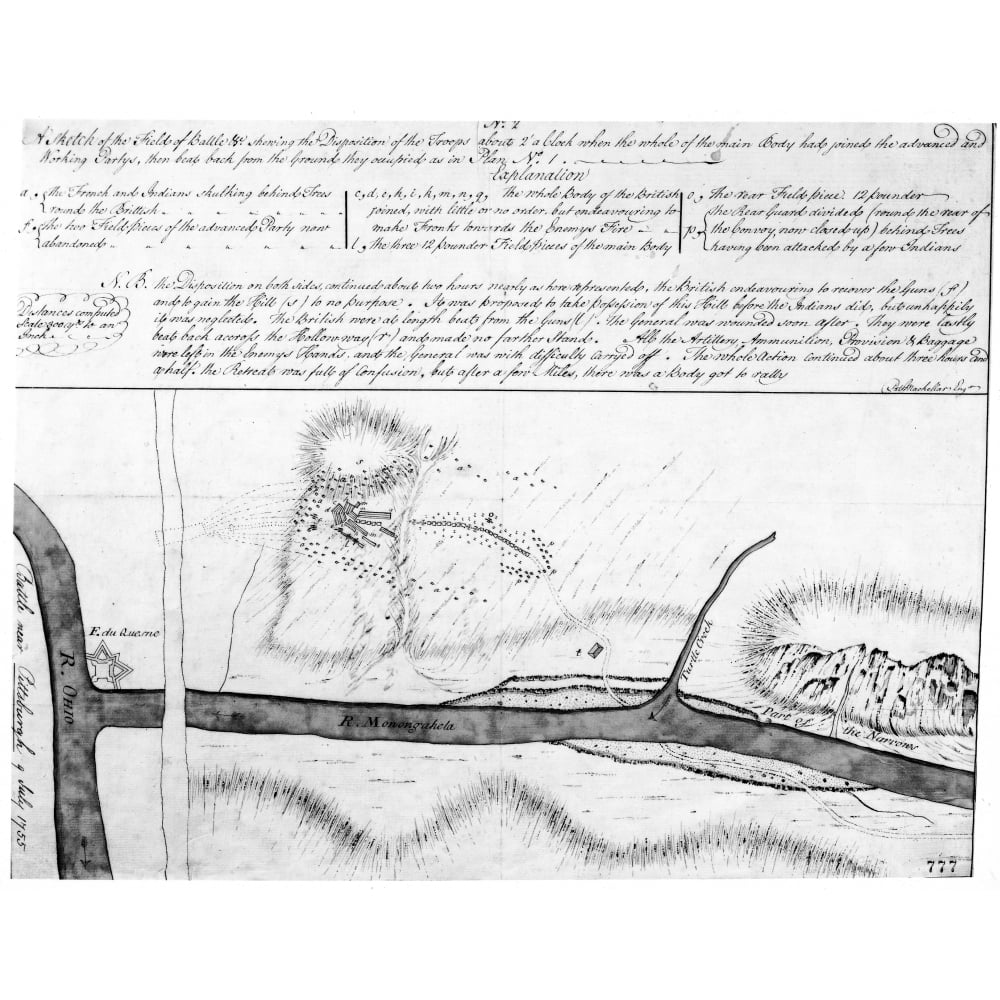 No. 2
A Sketch of the Field of Battle &c. shewing the Disposition of the Troops about 2 a Clock when the whole of the main Body had joined the advanced and
Working Partys, then beat back from the Ground they occupied as in Plan No. 1.
Explanation
a . the French and Indians skulking behind Trees
round the Brittish
f . the two Field pieces of the advanced Party now
abandoned
c, d, e, h, i, k, m, n, q, the whole Body of the British
joined, with little or no order, but endeavouring to
make Fronts towards the Enemys Fire
l, the three 12 pounder Field pieces of the main Body
o, the rear Field piece 12 pounder
p, the Rear Guard divided (round the rear of
the Convoy, now closed up) behind Trees
having been attacked by a few Indians
N. B. the Disposition on both sides, continued about two hours nearly as here represented, the British endeavouring to recover the Guns (f)
and to gain the Hill (s) to no purpose. It was proposed to take possession of this Hill before the Indians did, but unhappily
it was neglected. The British were at length beat from the Guns (l). The General was wounded soon after. They were lastly
beat back accross the Hollow way (r) and made no farther Stand. All the Artillery, Ammunition, Provision & Baggage
were left in the Enemys Hands, and the General was with difficulty carryed off. The whole Action continued about three hours and
a half. the Retreat was full of Confusion, but after a few Miles, there was a Body got to rally
Distances computed
Scale 300 yds. to an
Inch.
Pat Mackellar Engr.
F. du Quesne
R. OHIO
R. Monongahela
Turtle Creek
Part of
the Narrows
t
Battle near Pittsburgh 9 July 1755
777